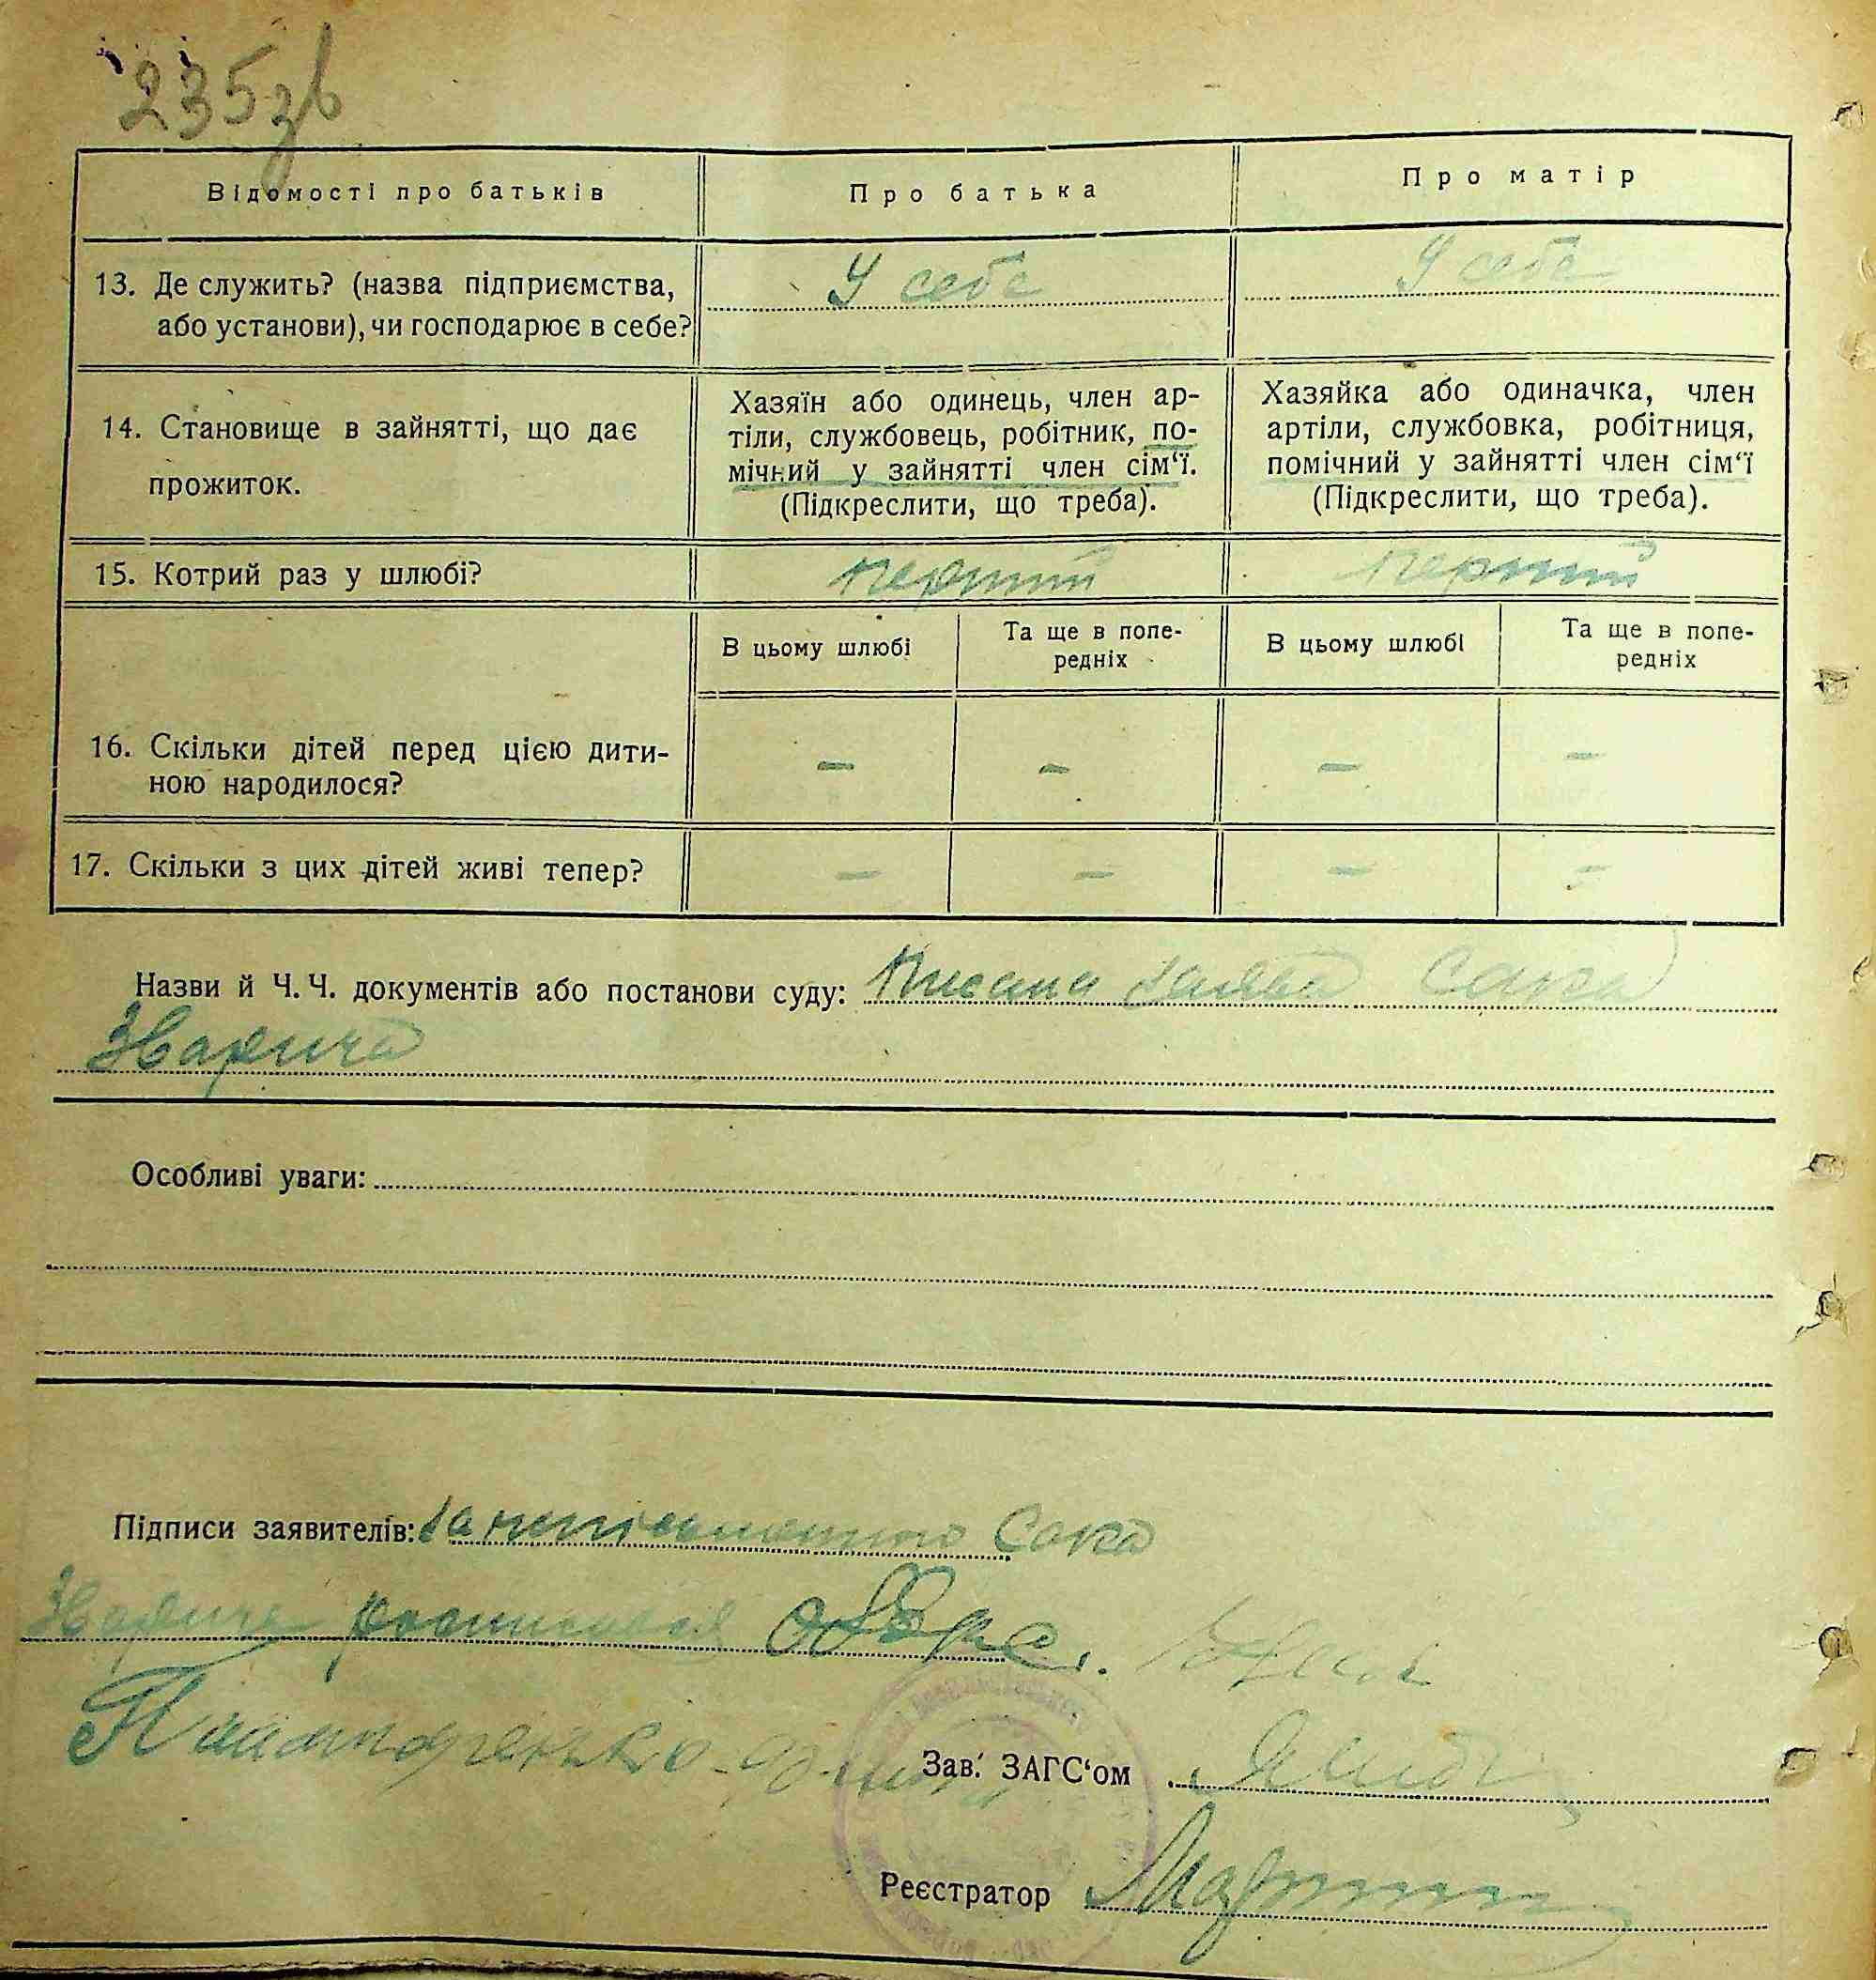 235зв
Відомості про батьків
Про батька
Про матір
13. Де служить? (назва підприємства,
або установи), чи господарює в себе?
У себе
У себе
14. Становище в зайнятті, що дає
прожиток.
Хазяїн або одинець, член ар-
тіли, службовець, робітник, по-
мічний у зайнятті член сім‘ї.
(Підкреслити, що треба).
Хазяйка або одиначка, член
артіли, службовка, робітниця,
помічний у зайнятті член сім‘ї
(Підкреслити, що треба).
15. Котрий раз у шлюбі?
перший
перший
В цьому шлюбі
Та ще в попе-
редніх
В цьому шлюбі
Та ще в попе-
редніх
16. Скільки дітей перед цією дити-
ною народилося?
– – – –
17. Скільки з цих дітей живі тепер?
– – – –
Назви й Ч. Ч. документів або постанови суду: заява Сака
Зварича
Особливі уваги:
Підписи заявителів: За неписьменного Сака
Зварича росписався
Зав. ЗАГС‘ом
Реєстратор